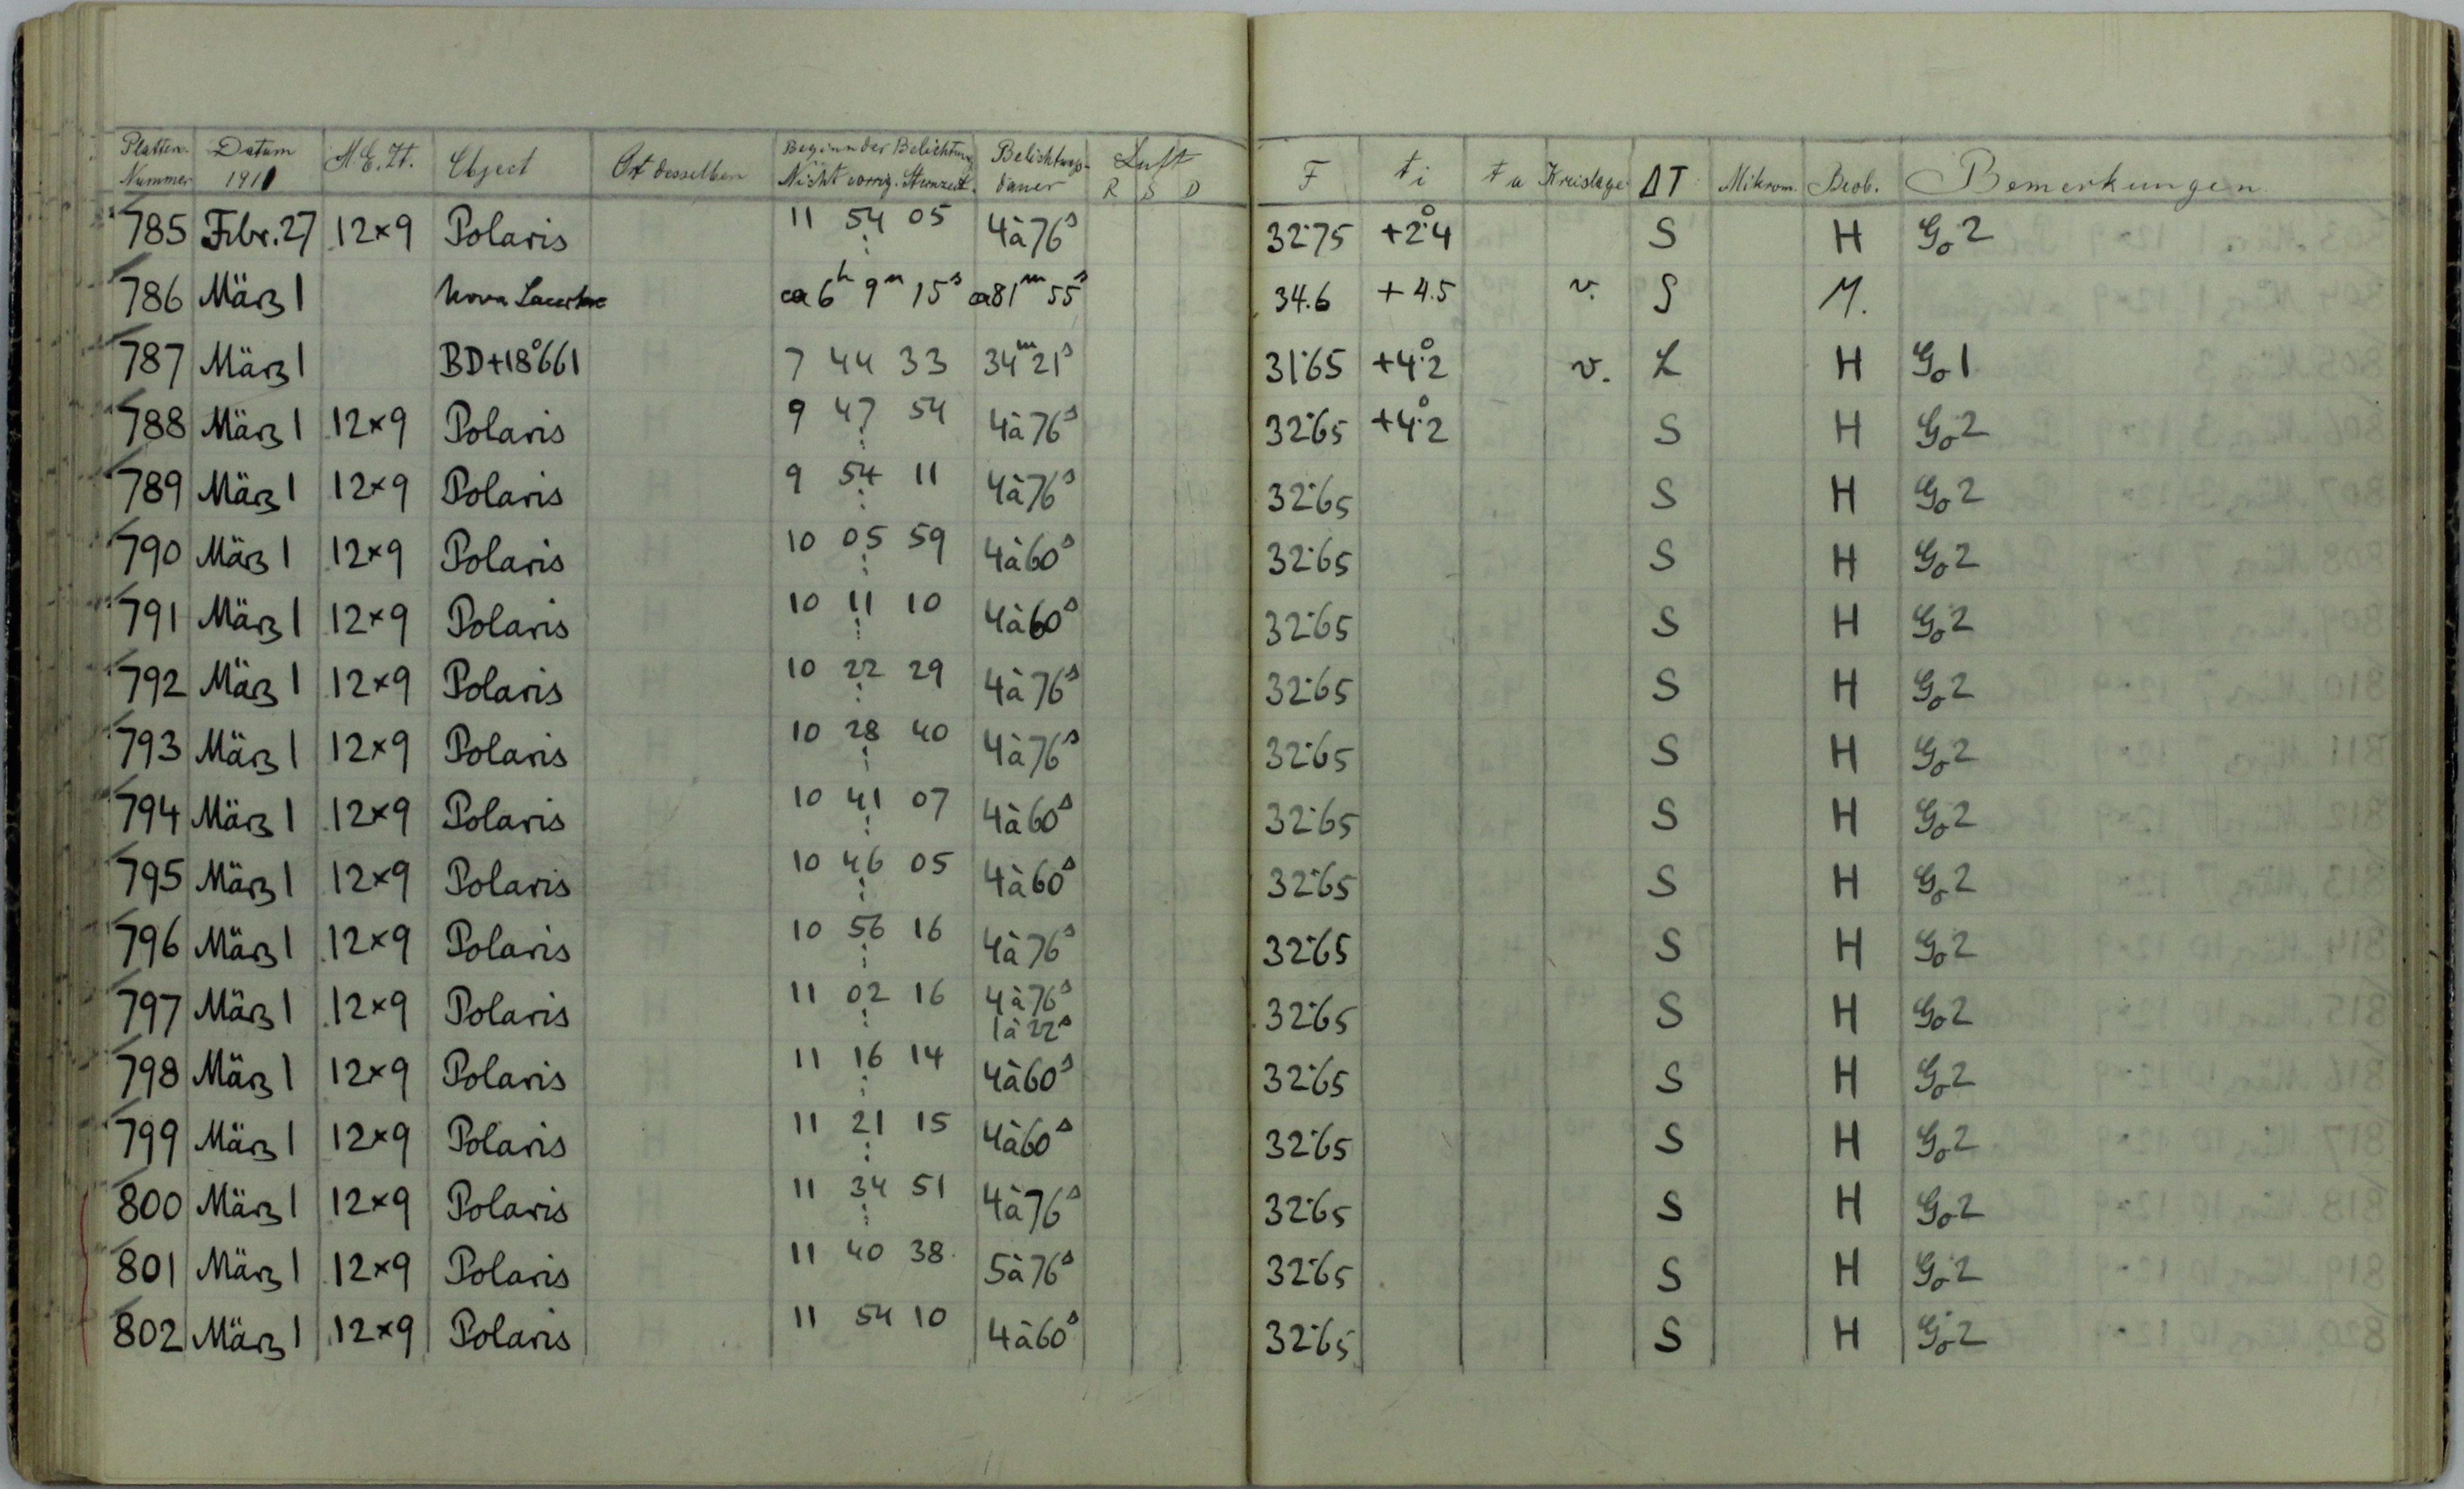 Platten- Nummer Datum 1911 M.E.Zt. Object Ort desselben Beginn der Belichtung Nicht corrig. Sternzeit. Belichtungs- dauer Luft R S D F ti ta Kreislage ΔT Mikrom. Beob. Bemerkungen
785 Febr. 27 12×9 Polaris 11 54 05 4à76s 32.75 +2°.4 S H Go 2
786 März 1 Nova Lacertae ca 6h 9m 15s ca 81m 55s 34.6 +4.5 v. S M.
787 März 1 BD+18°661 7 44 33 34m 21s 31.65 +4°.2 v. L H Go 1
788 März 1 12×9 Polaris 9 47 54 4à76s 32.65 +4°.2 S H Go 2
789 März 1 12×9 Polaris 9 54 11 4à76s 32.65 S H Go 2
790 März 1 12×9 Polaris 10 05 59 4à60s 32.65 S H Go 2
791 März 1 12×9 Polaris 10 11 10 4à60s 32.65 S H Go 2
792 März 1 12×9 Polaris 10 22 29 4à76s 32.65 S H Go 2
793 März 1 12×9 Polaris 10 28 40 4à76s 32.65 S H Go 2
794 März 1 12×9 Polaris 10 41 07 4à60s 32.65 S H Go 2
795 März 1 12×9 Polaris 10 46 05 4à60s 32.65 S H Go 2
796 März 1 12×9 Polaris 10 56 16 4à76s 32.65 S H Go 2
797 März 1 12×9 Polaris 11 02 16 4à76s 1à22s 32.65 S H Go 2
798 März 1 12×9 Polaris 11 16 14 4à60s 32.65 S H Go 2
799 März 1 12×9 Polaris 11 21 15 4à60s 32.65 S H Go 2
800 März 1 12×9 Polaris 11 34 51 4à76s 32.65 S H Go 2
801 März 1 12×9 Polaris 11 40 38 5à76s 32.65 S H Go 2
802 März 1 12×9 Polaris 11 54 10 4à60s 32.65 S H Go 2